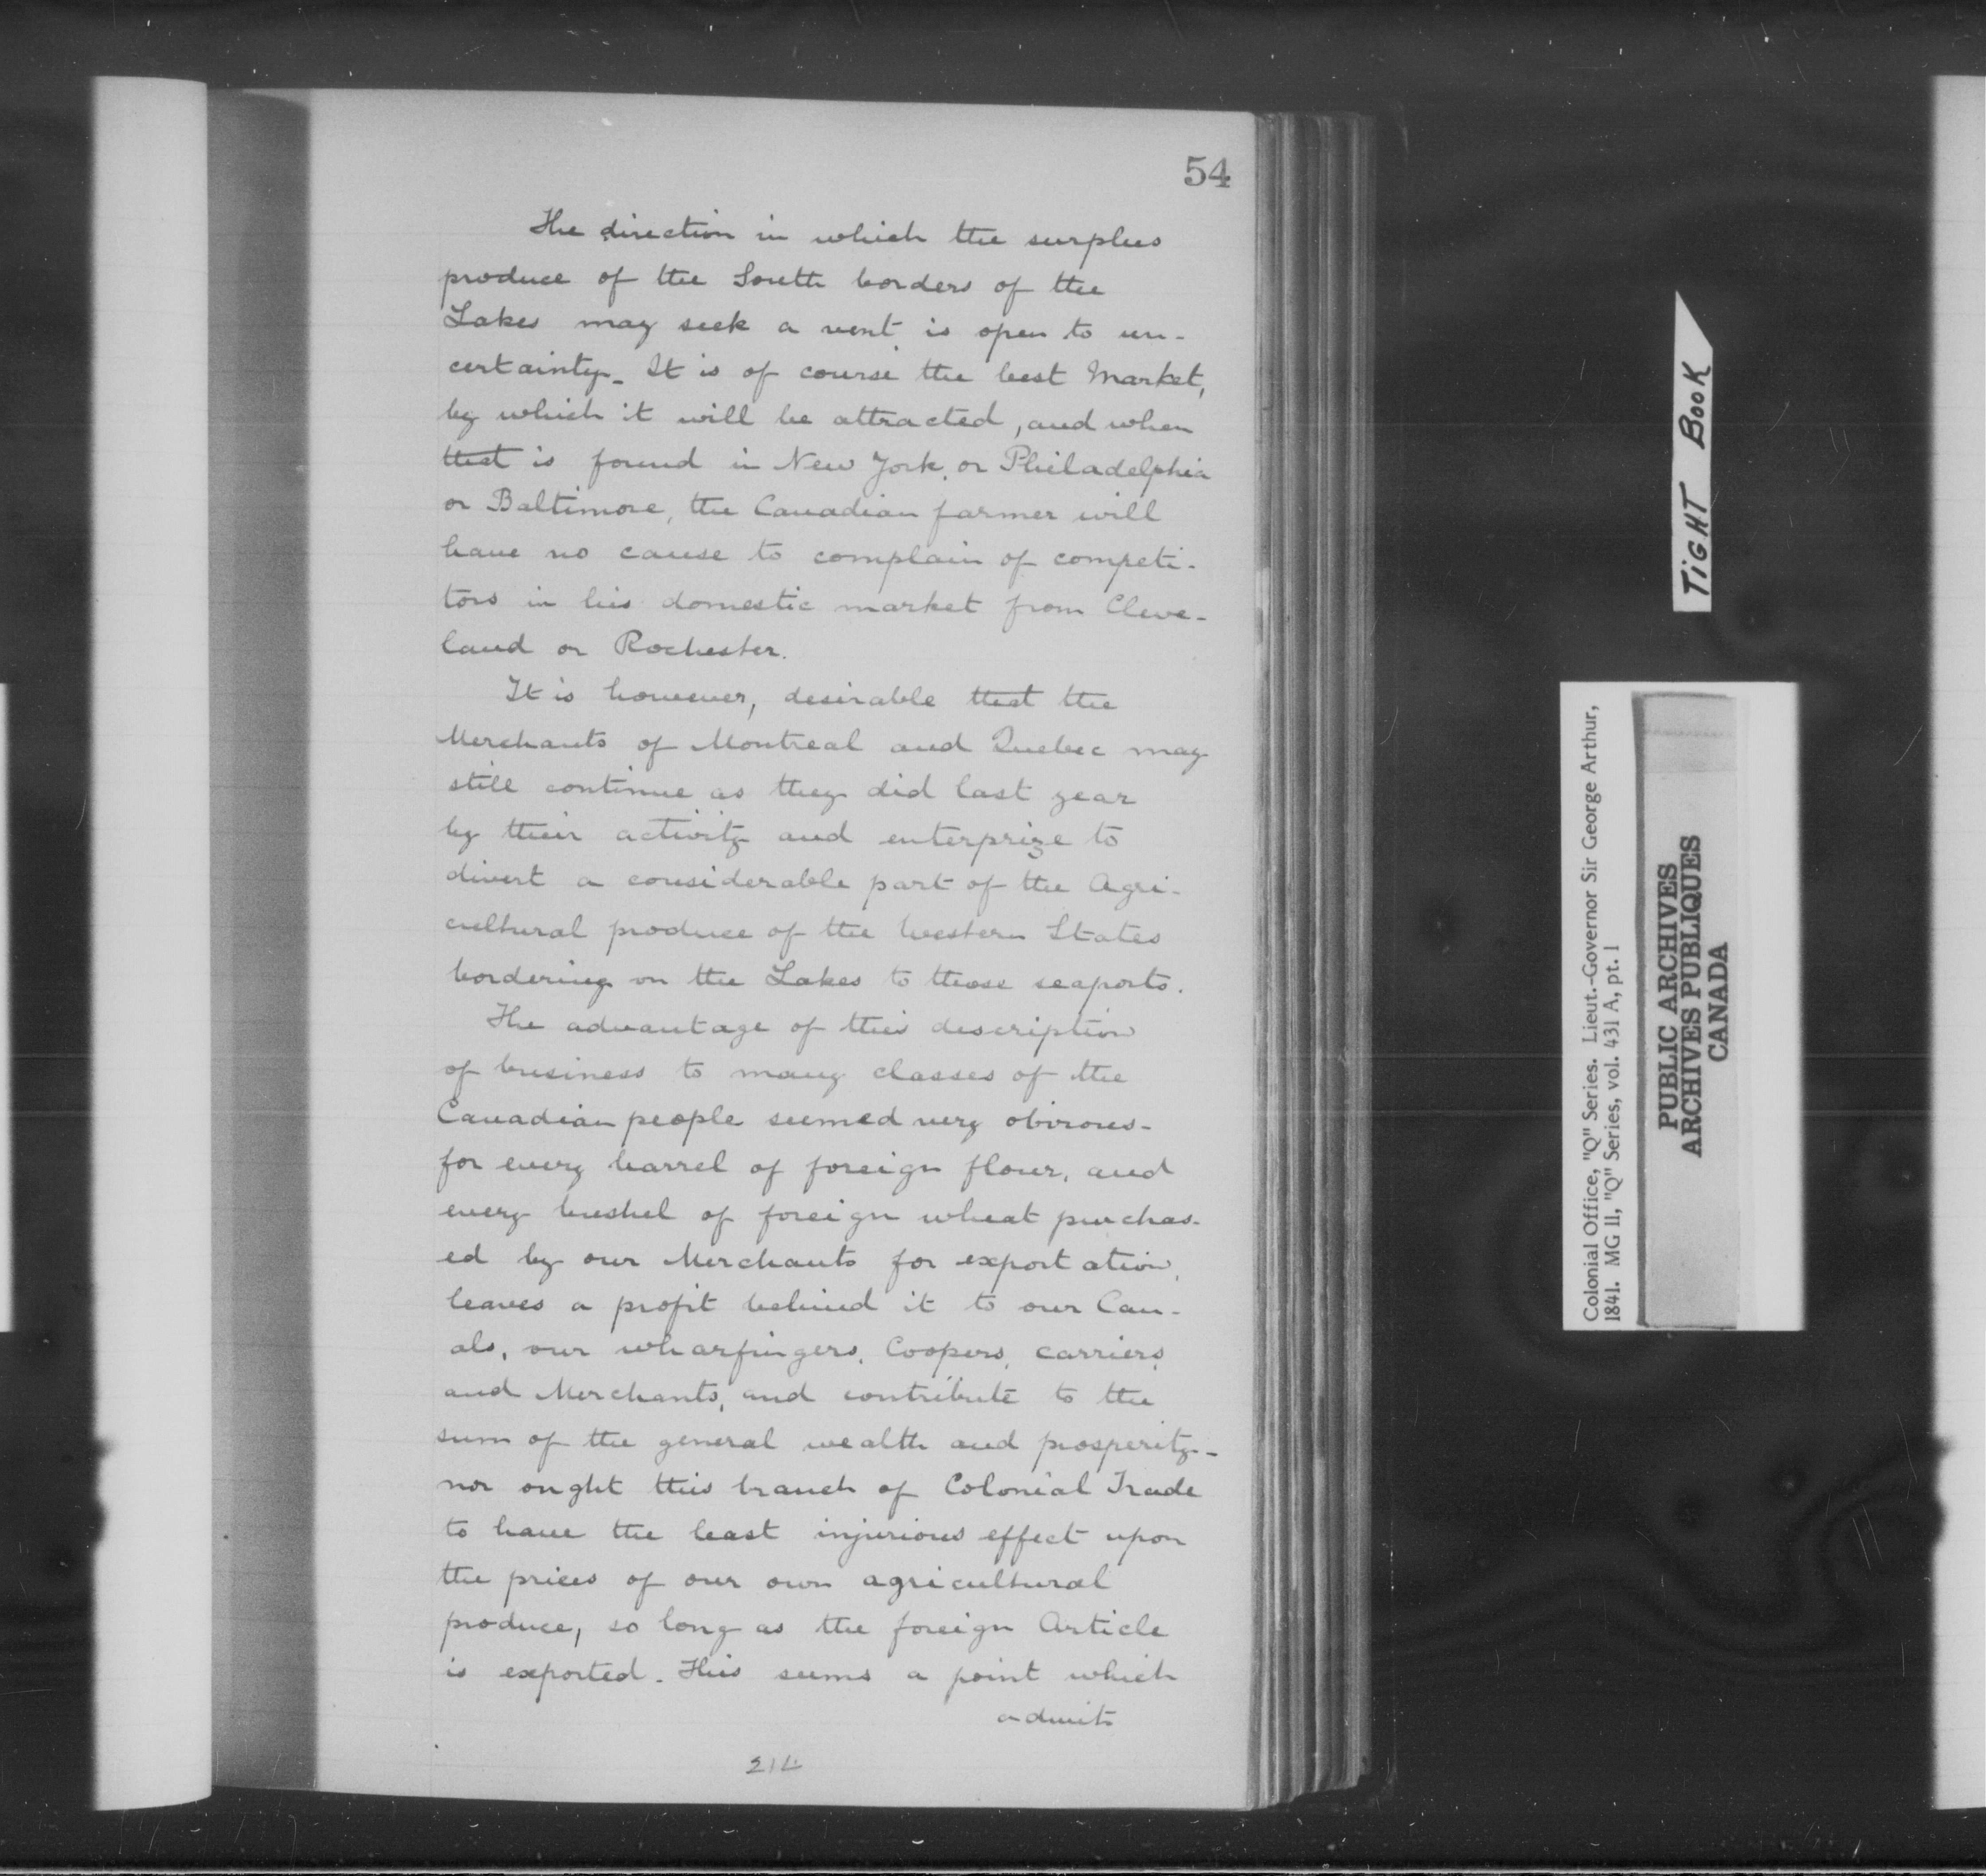 54
The direction in which the surplus
produce of the South borders of the
Lakes may seek a vent is open to un-
certainty. It is of course the best Market,
by which it will be attracted, and when
that is found in New York, or Philadelphia
or Baltimore, the Canadian farmer will
have no cause to complain of competi-
tors in his domestic market from Cleve-
land or Rochester.
It is however, desirable that the
Merchants of Montreal and Quebec may
still continue as they did last year
by their activity and enterprize to
divert a considerable part of the Agri-
cultural produce of the Western States
bordering on the Lakes to those seaports.
The advantage of this description
of business to many classes of the
Canadian people seemed very obvious-
for every barrel of foreign flour, and
every bushel of foreign wheat purchas-
ed by our Merchants for exportation,
leaves a profit behind it to our Can-
als, our wharfingers, Coopers, carriers,
and Merchants, and contribute to the
sum of the general wealth and prosperity-
nor ought this branch of Colonial Trade
to have the least injurious effect upon
the prices of our own agricultural
produce, so long as the foreign Article
is exported. This seems a point which
admits
214
TIGHT BOOK
Colonial Office, "Q" Series. Lieut.-Governor Sir George Arthur,
1841. MG 11, "Q" Series, vol. 431 A, pt. 1
PUBLIC ARCHIVES
ARCHIVES PUBLIQUES
CANADA